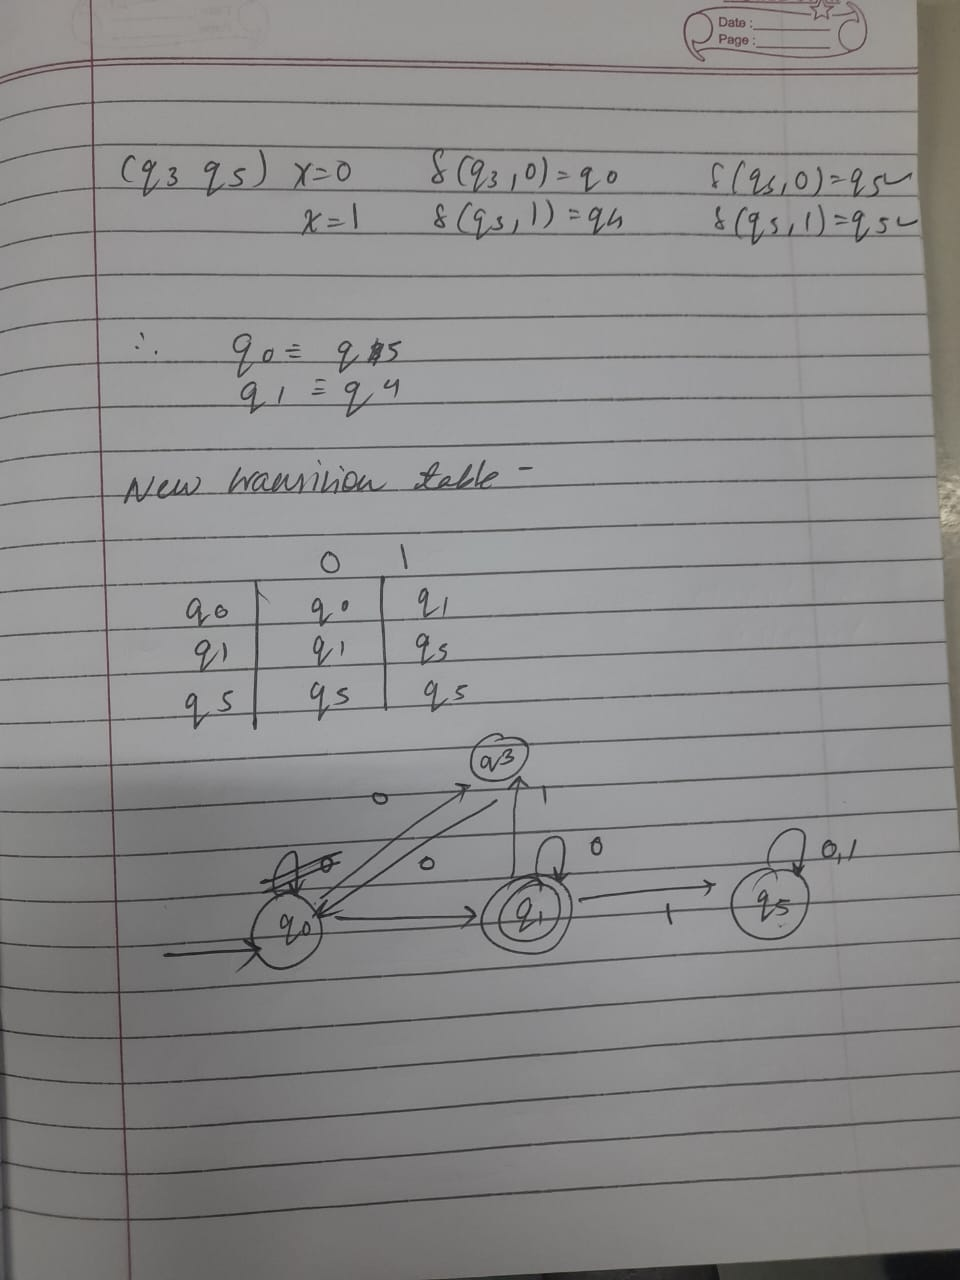 Date :
Page :
(q3 q5) x=0 δ(q3,0)=q0 δ(q5,0)=q5
x=1 δ(q3,1)=q4 δ(q5,1)=q5
∴ q0 ≡ q5
q1 ≡ q4
New transition table -
0 1
q0 q0 q1
q1 q1 q5
q5 q5 q5
q3
0 1
0 0 0 0,1
q0 q1 1 q5